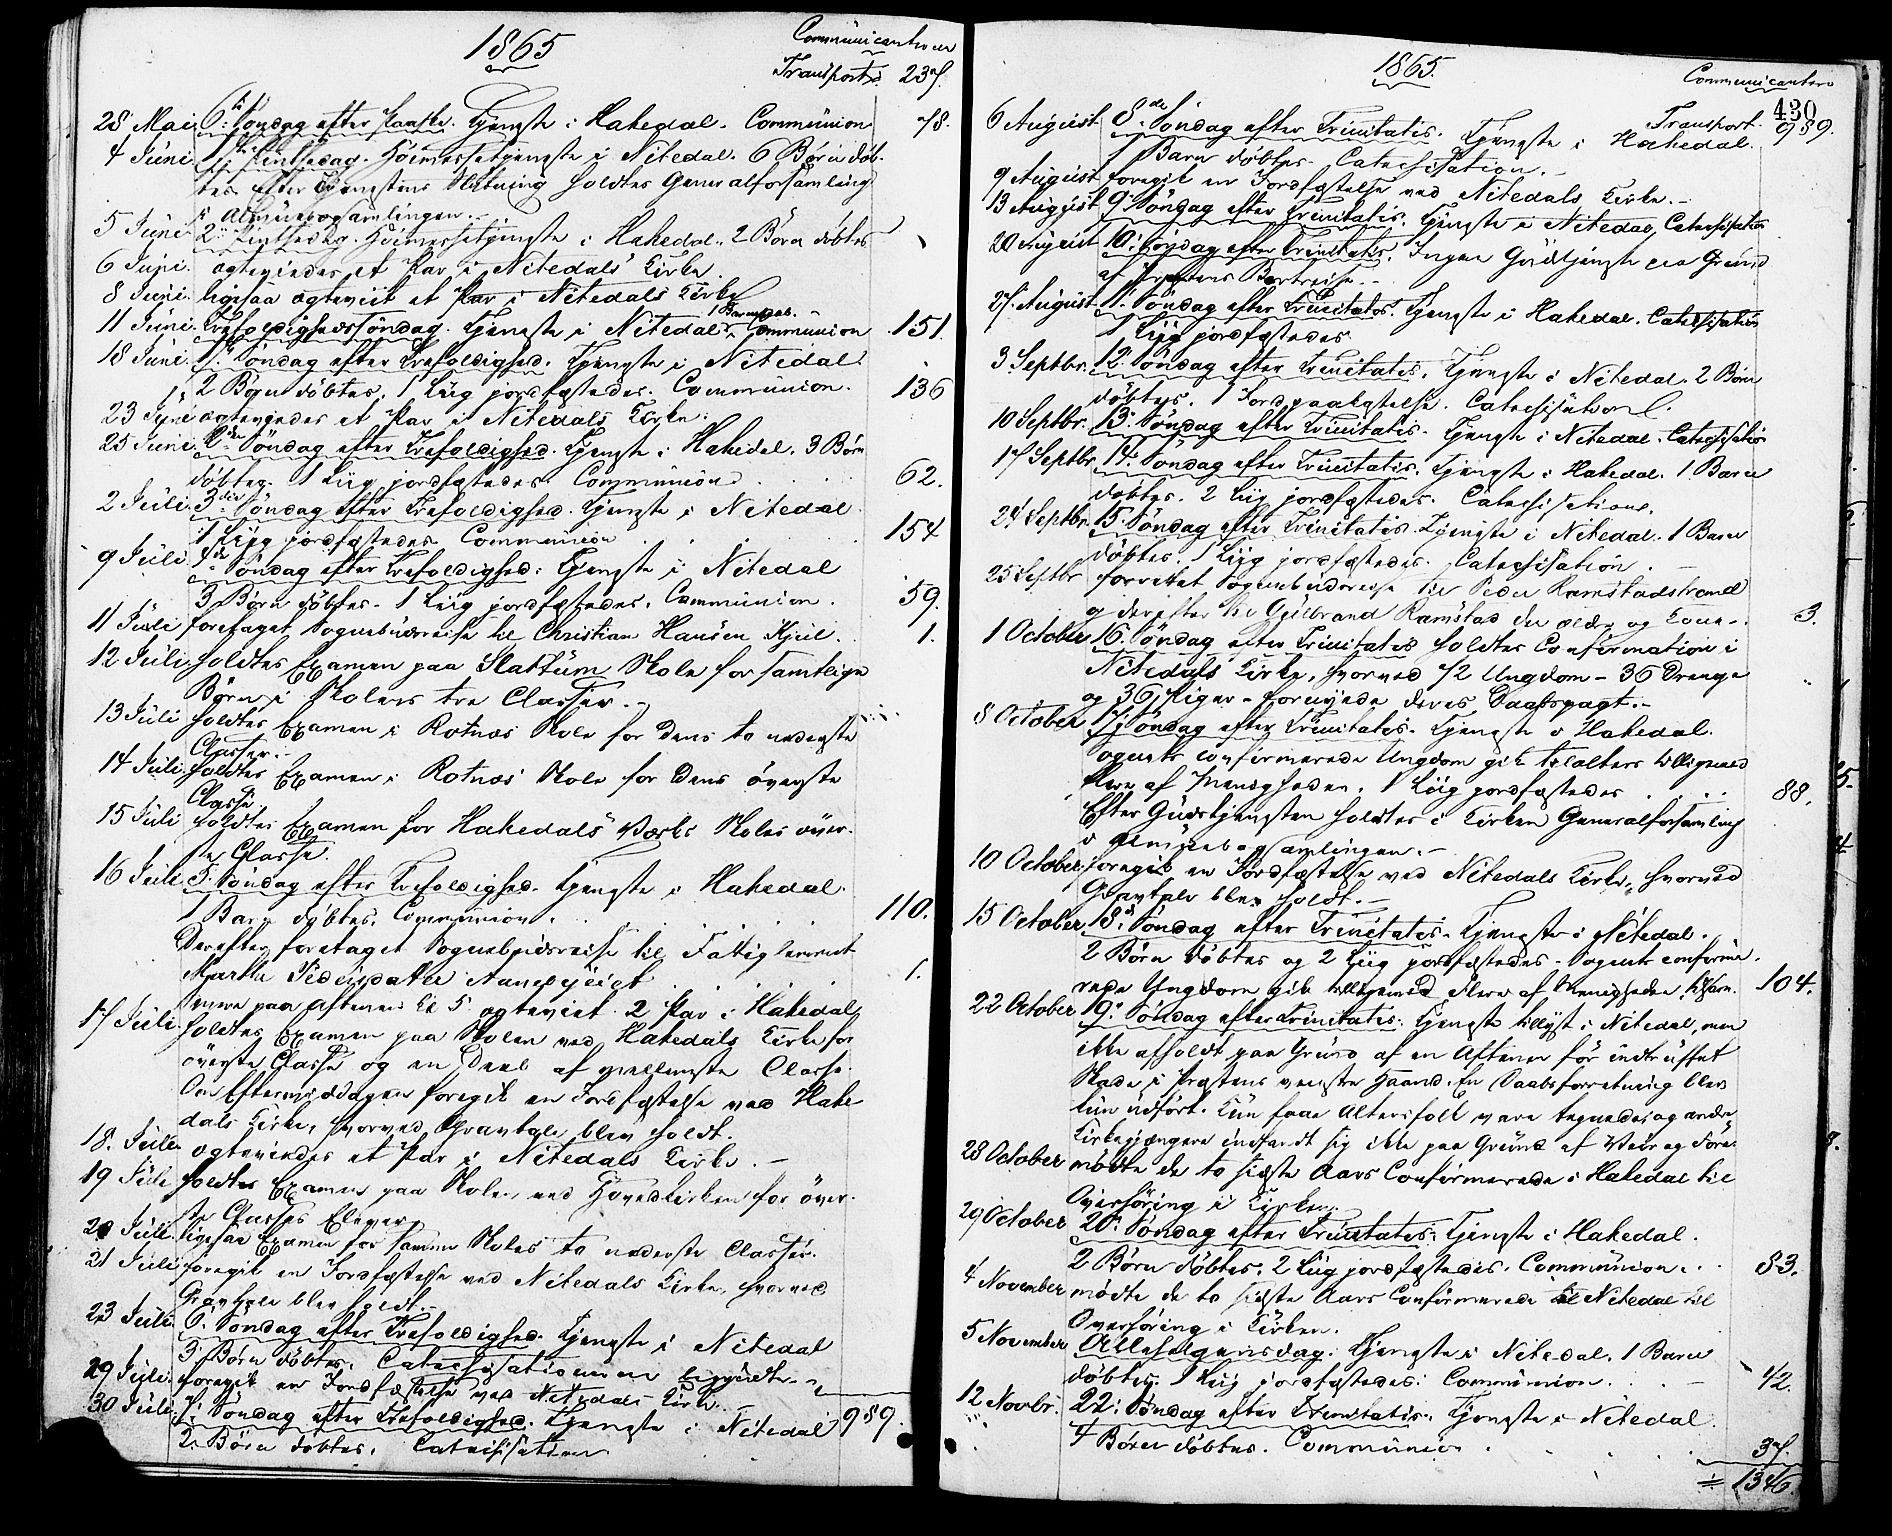 1865
Communicanterne
Transport 237.
28 Mai 6te Söndag efter Paaske. Tjeneste i Hakedal. Communion 78.
4 Juni 1ste Pintsedag. Höimessetjeneste i Nitedal. 6 Börn döb-
tes. Efter Tjenestens Slutning holdtes Generalforsamling
i Almuebogsamlingen.
5 Juni 2den Pintsedag. Höimessetjeneste i Hakedal. 2 Börn döbtes
6 Juni. ægteviedes et Par i Nitedals Kirke.
8 Juni. ligesaa ægteviet et Par i Nitedals Kirke
11 Juni. Trefoldighedssöndag. Tjeneste i Nitedal. 1 Barnedaab. Communion 151
18 Juni. 1ste Söndag efter Trefoldighed. Tjeneste i Nitedal
2 Börn döbtes. 1 Liig jordfæstedes. Communion. 136
23 Juni ægteviedes et Par i Nitedals Kirke.
25 Juni. 2den Söndag efter Trefoldighed. Tjeneste i Hakedal. 3 Börn
döbtes. 1 Liig jordfæstedes. Communion 62.
2 Juli. 3die Söndag efter Trefoldighed. Tjeneste i Nitedal
1 Liig jordfæstedes Communion 154
9 Juli 4de Söndag efter Trefoldighed. Tjeneste i Nitedal
3 Börn döbtes. 1 Liig jordfæstedes. Communion. 59.
11 Juli foretaget Sognebudsreise til Christian Hansen Kjul. 1.
12 Juli holdtes Examen paa Slattum Skole for samtlige
Börn i Skolens tre Classer.
13 Juli holdtes Examen i Rotnæs Skole for dens to nederste
Classer.
14 Juli holdtes Examen i Rotnæs Skole for dens överste
Classe.
15 Juli holdtes Examen for Hakedals Værks Skoles över-
ste Classe.
16 Juli 5. Söndag efter Trefoldighed. Tjeneste i Hakedal.
1 Barn döbtes. Communion. 110.
Derefter foretaget Sognebudsreise til Fattiglemmet
Marthe Pedersdatter 1.
samme paa Aftenen Kl 5 ægteviet 2 Par i Hakedal
17 Juli. holdtes Examen paa Skolen ved Hakedals Kirke for
överste Classe og en Deel af mellemste Classe.
Om Eftermiddagen foregik en Jordfæstelse ved Hake-
dals Kirke, hvorved Gravtale blev holdt.
18. Juli ægteviedes et Par i Nitedals Kirke.
19 Juli holdtes Examen paa Skolen ved Hovedkirken for över-
ste Classes Elever
20 Juli. ligesaa Examen for samme Skoles to nederste Classer.
21 Juli foregik en Jordfæstelse ved Nitedals Kirke, hvorved
Gravtale blev holdt.
23 Juli. 6. Söndag efter Trefoldighed. Tjeneste i Nitedal
3 Börn döbtes. Catechisationerne begyndte.
29 Juli. foregik en Jordfæstelse ved Nitedals Kirke.
30 Juli. 7. Söndag efter Trefoldighed. Tjeneste i Nitedal 989.
2 Börn döbtes. Catechisation
1865.
Communicantern
430
Transport. 989.
6 August 8de Söndag efter Trinitatis. Tjeneste i Hakedal.
1 Barn döbtes. Catechisation.
9 August foregik en Jordfæstelse ved Nitedals Kirke.
13 August 9. Söndag efter Trinitatis. Tjeneste i Nitedal Catechisation
20 August 10. Söndag efter Trinitatis. Ingen Gudstjeneste paa Grund
af Præstens Bortreise.
27. August 11. Söndag efter Trinitatis. Tjeneste i Hakedal. Catechisation
1 Liig jordfæstedes
3 Septbr. 12. Söndag efter Trinitatis. Tjeneste i Nitedal. 2 Börn
döbtes. 1 Jordpaakastelse. Catechisation.
10 Septbr. 13. Söndag efter Trinitatis. Tjeneste i Nitedal. Catechisation
17 Septbr. 14. Söndag efter Trinitatis. Tjeneste i Hakedal. 1 Barn
döbtes. 2 Liig jordfæstedes. Catechisation.
24 Septbr. 15. Söndag efter Trinitatis. Tjeneste i Nitedal. 1 Barn
döbtes. 1 Liig jordfæstedes. Catechisation.
25 Septbr forrettet Sognebudsreise til Peder Ramstadstrand
og derefter til Gulbrand Ramstad den ældre og Kone. 3.
1 October 16. Söndag efter Trinitatis holdtes Confirmation i
Nitedals Kirke, hvorved 72 Ungdom - 36 Drenge
og 36 Piger - fornyede deres Daabspagt.
8 October 17. Söndag efter Trinitatis. Tjeneste i Hakedal.
Sognets confirmerede Ungdom gik til Alters tilligemed
flere af Menigheden. 1 Liig jordfæstedes 88.
Efter Gudstjenesten holdtes i Kirken Generalforsamling
i Almuebogsamlingen.
10 October foregik en Jordfæstelse ved Nitedals Kirke, hvorved
Gravtale blev holdt.
15 October 18. Söndag efter Trinitatis. Tjeneste i Nitedal.
2 Börn döbtes og 2 Liig jordfæstedes. Sognets confirme-
rede Ungdom gik tilligemed flere af Menigheden til Com. 104.
22 October 19. Söndag efter Trinitatis. Tjeneste tillyst i Nitedal, men
ikke afholdt paa Grund af en Aftenen för indtruffet
Skade i Præstens venstre Haand. En Daabsforretning blev
kun udfört. Kun faae Altersfolk vare tegnede og andre
Kirkegjængere indfandt sig ikke paa Grund af Veir og Före.
28 October mödte de to sidste Aars Confirmerede i Hakedal til
Overhöring i Kirken.
29 October 20. Söndag efter Trinitatis. Tjeneste i Hakedal.
2 Börn döbtes. 2 Liig jordfæstedes. Communion. 83.
4 November mödte de to sidste Aars Confirmerede til Nitedal til
Overhöring i Kirken.
5 November Allehelgensdag. Tjeneste i Nitedal. 1 Barn
döbtes. 1 Liig jordfæstedes. Communion. 42.
12 Novbr. 22. Söndag efter Trinitatis. Tjeneste i Nitedal
4 Börn döbtes. Communion 37.
= 1346.